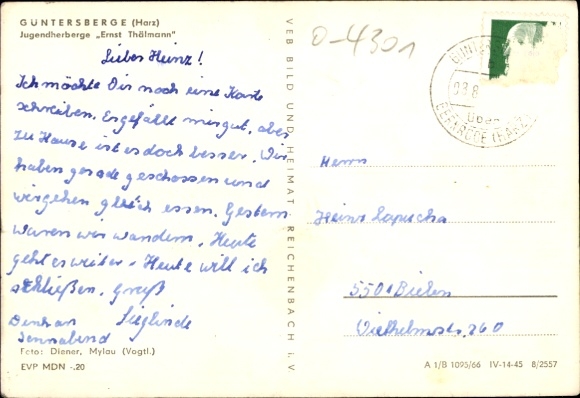 GÜNTERSBERGE (Harz)
Jugendherberge „Ernst Thälmann"
Lieber Heinz!
Ich möchte Dir noch eine Karte
schreiben. Es gefällt mir gut, aber
zu Hause ist es doch besser. Wir
haben gerade geschossen und
wir gehen gleich essen. Gestern
waren wir wandern. Heute
geht es weiter. Heute will ich
schließen. Gruß
Sieglinde
Sonnabend
Foto: Diener, Mylau (Vogtl.)
EVP MDN -.20
VEB BILD UND HEIMAT REICHENBACH i. V
0-4301
über
(HARZ)
Herrn
Heinz
5501 Bielen
A 1/B 1095/66 IV-14-45 8/2557